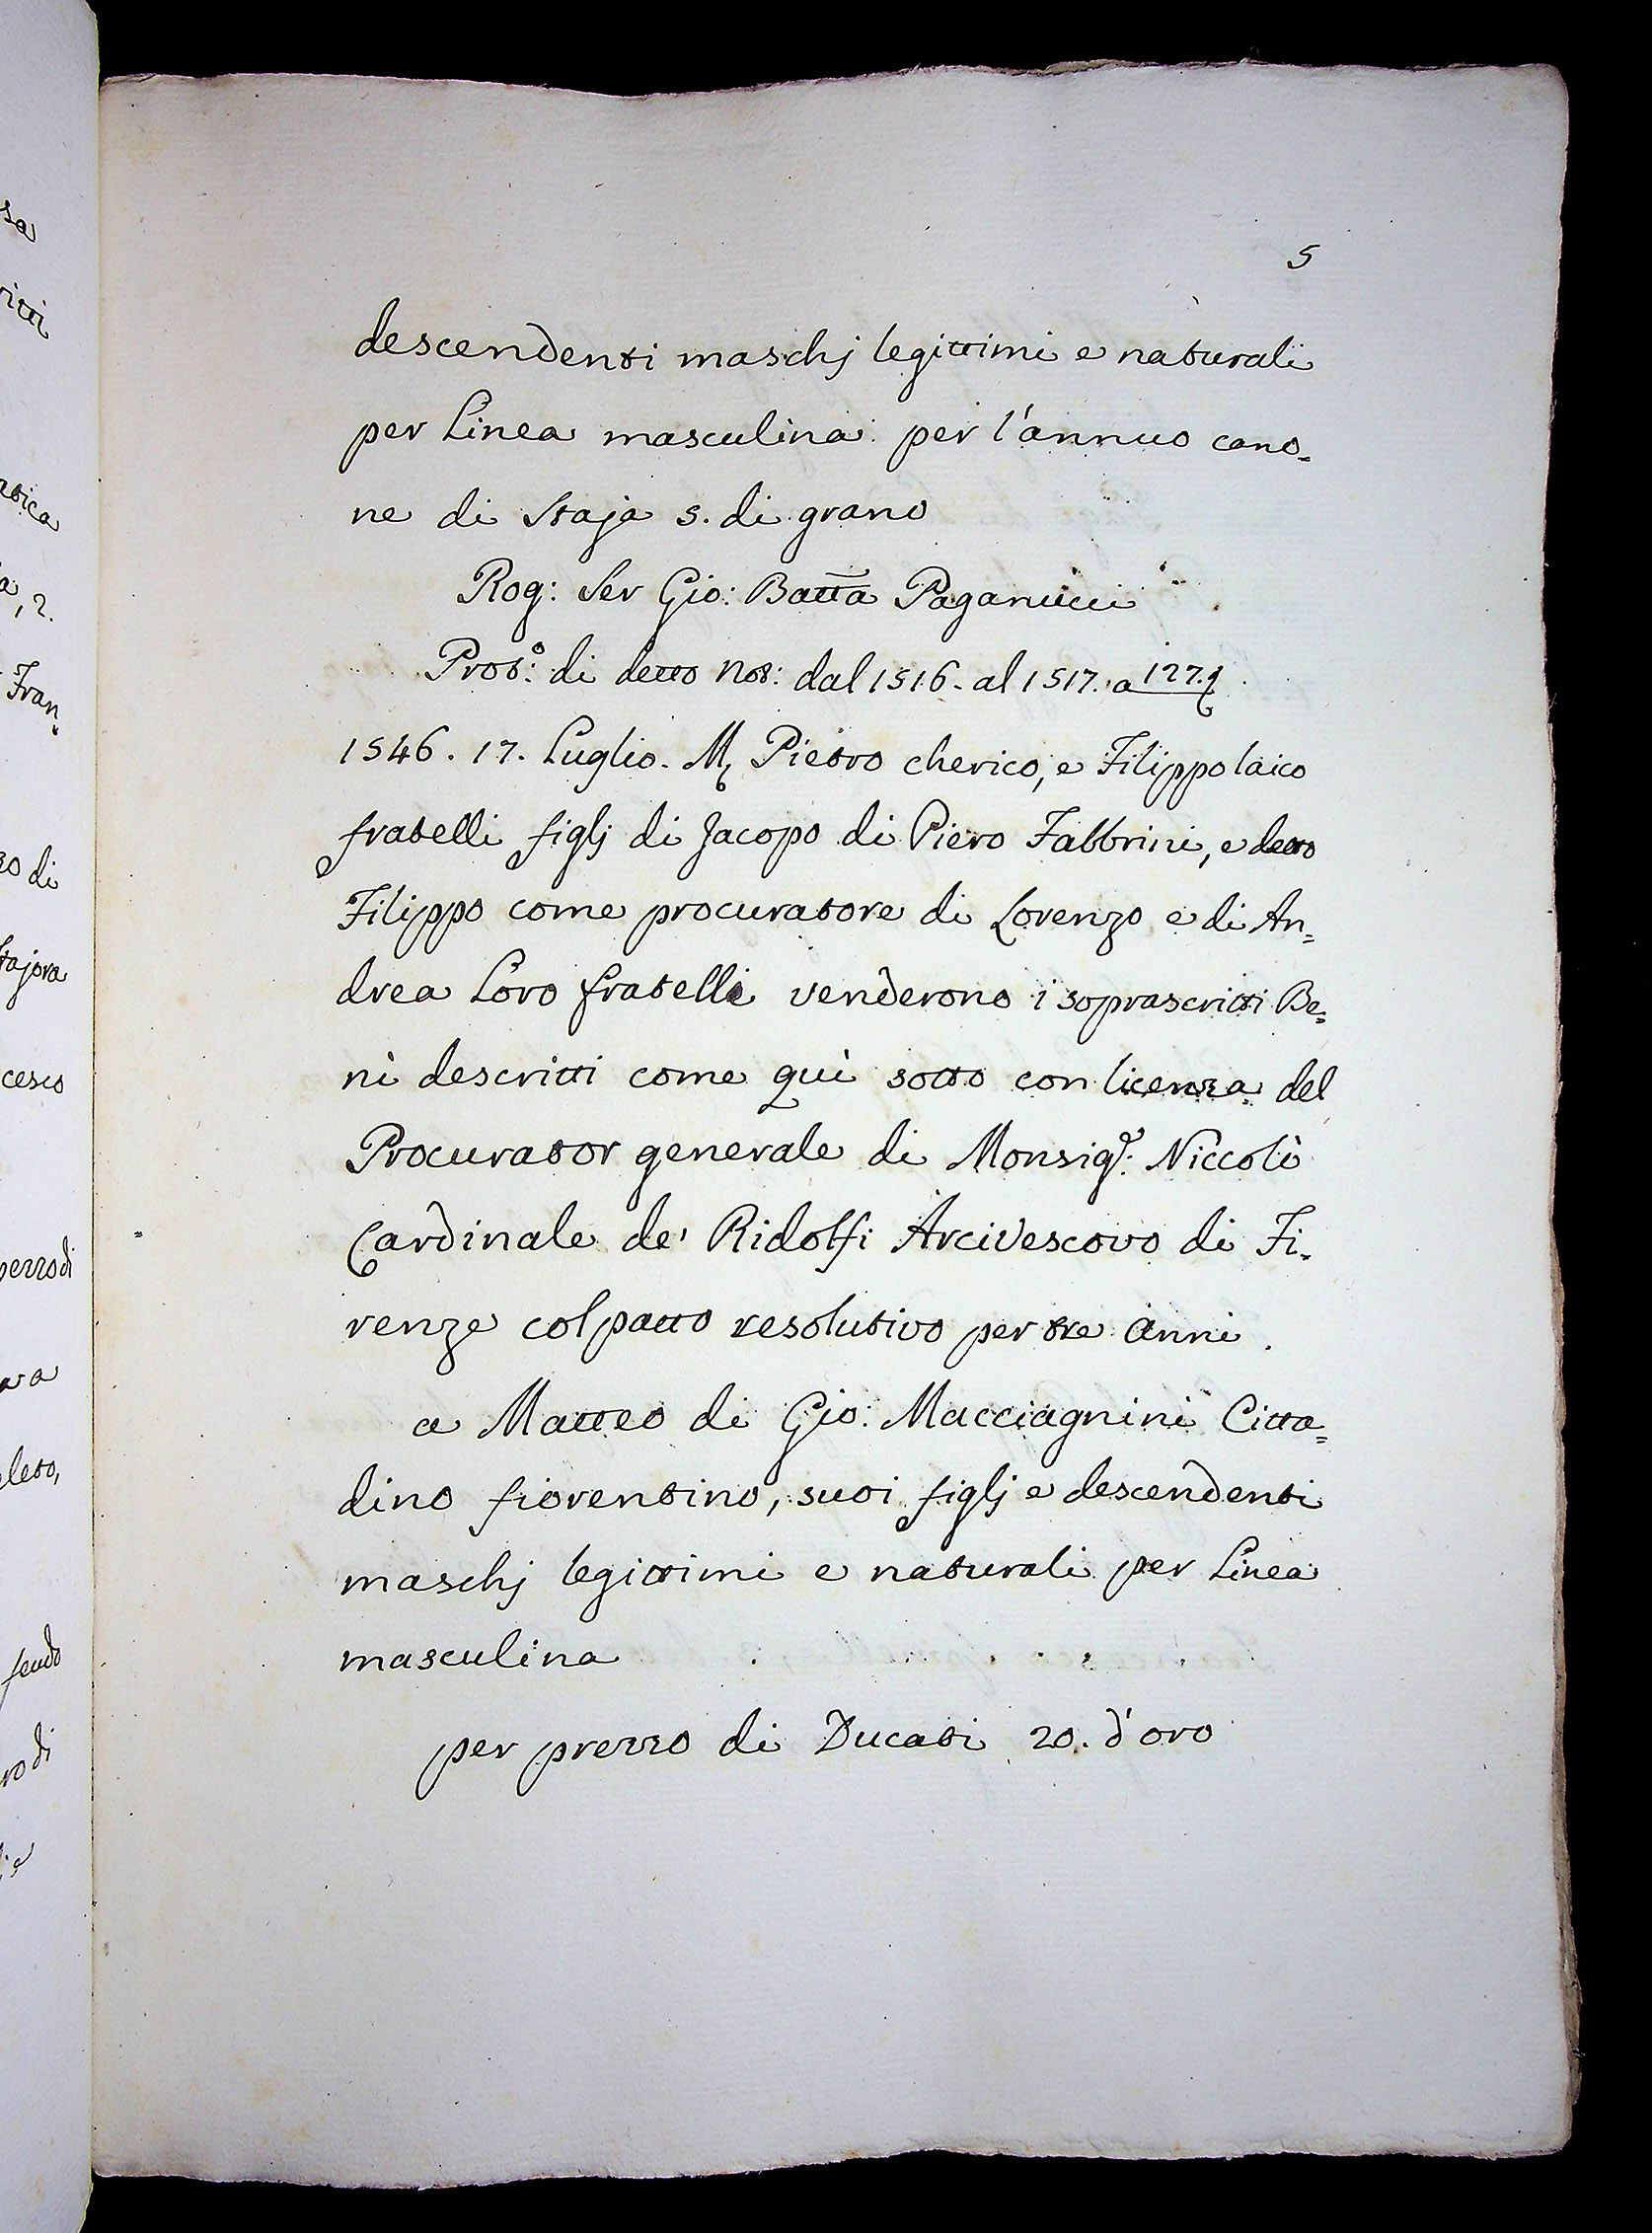 5
descendenti maschj legittimi e naturali
per Linea masculina per l'annuo cano=
ne di Staja 5. di grano
Rog: Ser Gio: Batta Paganucci
Prot:º di detto Not: dal 1516. al 1517. a 127.
1546. 17. Luglio. M. Pietro cherico, e Filippo laico
fratelli figlj di Jacopo di Piero Fabbrini, e detto
Filippo come procuratore di Lorenzo e di An=
drea Loro fratelli venderono i soprascritti Be=
ni descritti come quì sotto con licenza del
Procurator generale di Monsigr: Niccolò
Cardinale de' Ridolfi Arcivescovo di Fi=
renze col patto resolutivo per tre anni.
a Matteo di Gio: Macciagnini Citta=
dino fiorentino, suoi figlj e descendenti
maschj legittimi e naturali per Linea
masculina
per prezzo di Ducati 20. d'oro